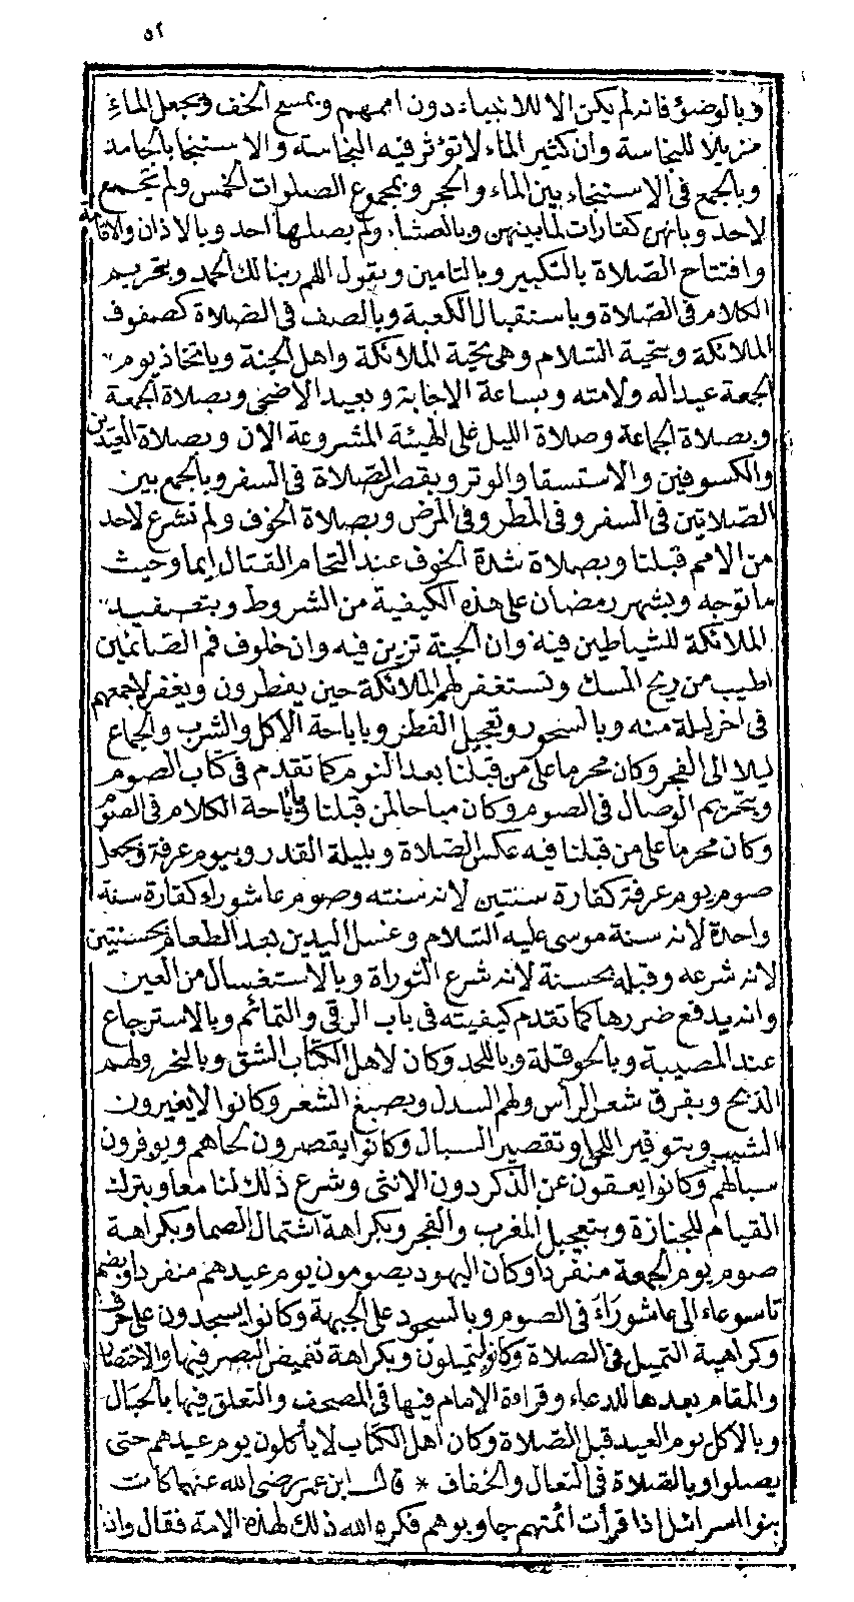 ٥٢
وبالوضؤ فانه لم يكن الا للانبياء دون اممهم وبمسح الخف وبجعل الماء
مزيلا للنجاسة وان كثير الماء لا تؤثر فيه النجاسة والاستنجا بالجامد
وبالجمع في الاستنجاء بين الماء والحجر وبمجموع الصلوات الخمس ولم تجمع
لاحد وبانهن كفارات لما بينهن وبالعشاء ولم يصلها احد وبالاذان والاقامة
وافتتاح الصلاة بالتكبير وبالتامين وبقول اللهم ربنا لك الحمد وبتحريم
الكلام في الصلاة وباستقبال الكعبة وبالصف في الصلاة كصفوف
الملائكة وبتحية السلام وهي تحية الملائكة واهل الجنة وباتخاذ يوم
الجمعة عيدا له ولامته وبساعة الاجابة وبعيد الاضحى وبصلاة الجمعة
وبصلاة الجماعة وصلاة الليل على الهيئة المشروعة الان وبصلاة العيدين
والكسوفين والاستسقا والوتر وبقصر الصلاة في السفر وبالجمع بين
الصلاتين في السفر وفي المطر وفي المرض وبصلاة الخوف ولم تشرع لاحد
من الامم قبلنا وبصلاة شدة الخوف عند التحام القتال ايما وحيث
ما توجه وبشهر رمضان على هذه الكيفية من الشروط وبتصفيد
الملائكة للشياطين فيه وان الجنة تزين فيه وان خلوف فم الصائمين
اطيب من ريح المسك وتستغفر لهم الملائكة حين يفطرون ويغفر لاجمعهم
في اخر ليلة منه وبالسحور وتعجيل الفطر وباباحة الاكل والشرب والجماع
ليلا الى الفجر وكان محرما على من قبلنا بعد النوم كما تقدم في كتاب الصوم
وبتحريم الوصال في الصوم وكان مباحا لمن قبلنا وباباحة الكلام في الصوم
وكان محرما على من قبلنا فيه عكس الصلاة وبليلة القدر وبيوم عرفة وبجعل
صوم يوم عرفة كفارة سنتين لانه سنته وصوم عاشوراء كفارة سنة
واحدة لانه سنة موسى عليه السلام وغسل اليدين بعد الطعام بحسنتين
لانه شرعه وقبله بحسنة لانه شرع التوراة وبالاستغسال من العين
وانه يدفع ضررها كما تقدم كيفيته في باب الرقي والتمائم وبالاسترجاع
عند المصيبة وبالحوقلة وباللحد وكان لاهل الكتاب الشق وبالنحر ولهم
الذبح وبفرق شعر الرأس ولهم السدل وبصبغ الشعر وكانوا لا يغيرون
الشيب وبتوفير اللحا وتقصير السبال وكانوا يقصرون لحاهم ويوفرون
سبالهم وكانوا يعقون عن الذكر دون الانثى وشرع ذلك لنا معا وبترك
القيام للجنازة وبتعجيل المغرب والفجر وبكراهة اشتمال الصما وبكراهة
صوم يوم الجمعة منفردا وكان اليهود يصومون يوم عيدهم منفردا وبضم
تاسوعاء الى عاشوراء في الصوم وبالسجود على الجبهة وكانوا يسجدون على حرف
وكراهية التميل في الصلاة وكانوا يتميلون وبكراهة تغميض البصر فيها والاختصار
والمقام بعدها للدعاء وقراءة الامام فيها في المصحف والتعلق فيها بالحبال
وبالاكل يوم العيد قبل الصلاة وكان اهل الكتاب لا يأكلون يوم عيدهم حتى
يصلوا وبالصلاة في النعال والخفاف * قال ابن عمر رضى الله عنهما كانت
بنوا اسرائيل اذا قرأت ائمتهم جاوبوهم فكره الله ذلك لهذه الامة فقال واذا